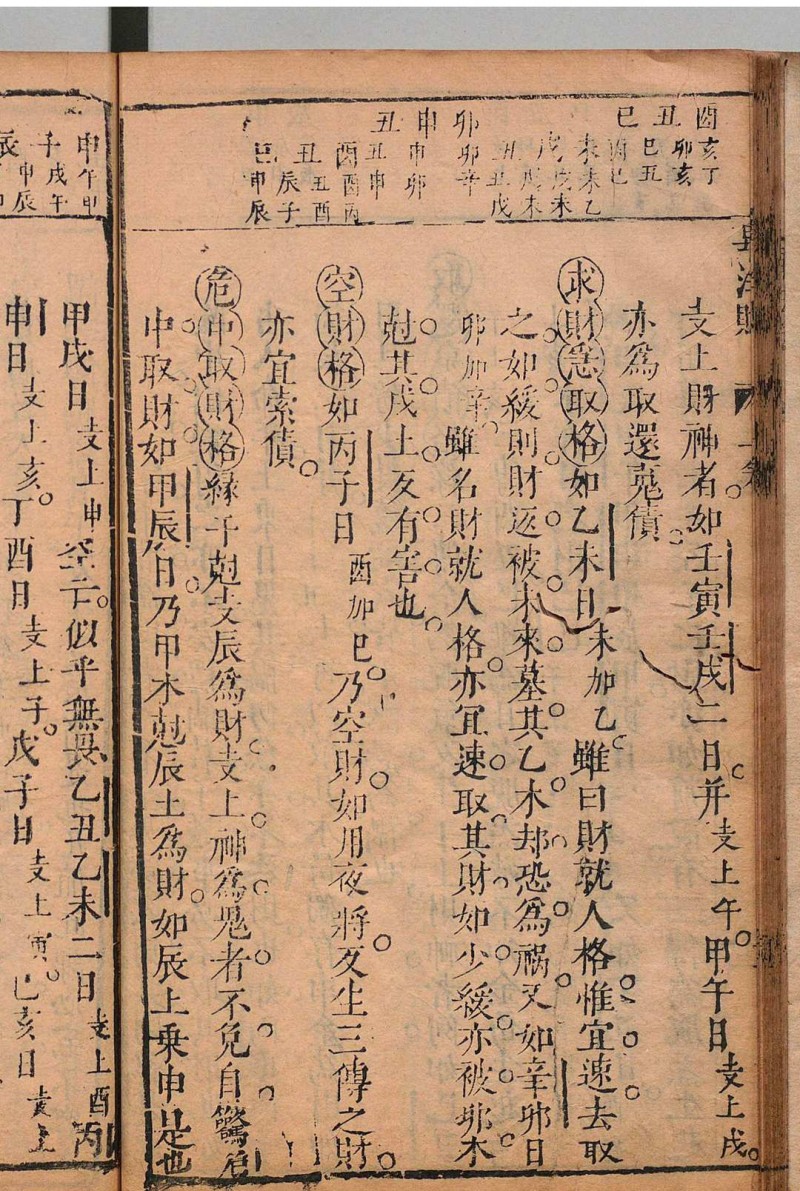 酉亥丁
丑卯亥
巳巳丑
酉巳
未未乙
戌戌未
丑丑戌
卯卯辛
申申卯
丑丑申
酉酉丙
丑丑酉
辰子
巳申辰
支上財神者如壬寅壬戌二日并支上午甲午日支上戌
亦爲取還寃債
求財急取格如乙未日未加乙雖曰財就人格惟宜速去取
之如緩則財返被木來墓其乙木却恐爲禍又如辛卯日
卯加辛雖名財就人格亦宜速取其財如少緩亦被卯木
尅其戌土反有害也
空財格如丙子日酉加巳乃空財如用夜將反生三傳之財
亦宜索債
危中取財格緣干尅支辰爲財支上神爲鬼者不免自驚危
中取財如甲辰日乃甲木尅辰土爲財如辰上乘申是也
申午申
子戌午
辰申辰
甲戌日支上申空亡似乎無畏乙丑乙未二日支上酉丙
申日支上亥丁酉日支上子戊子日支上寅己亥日支上